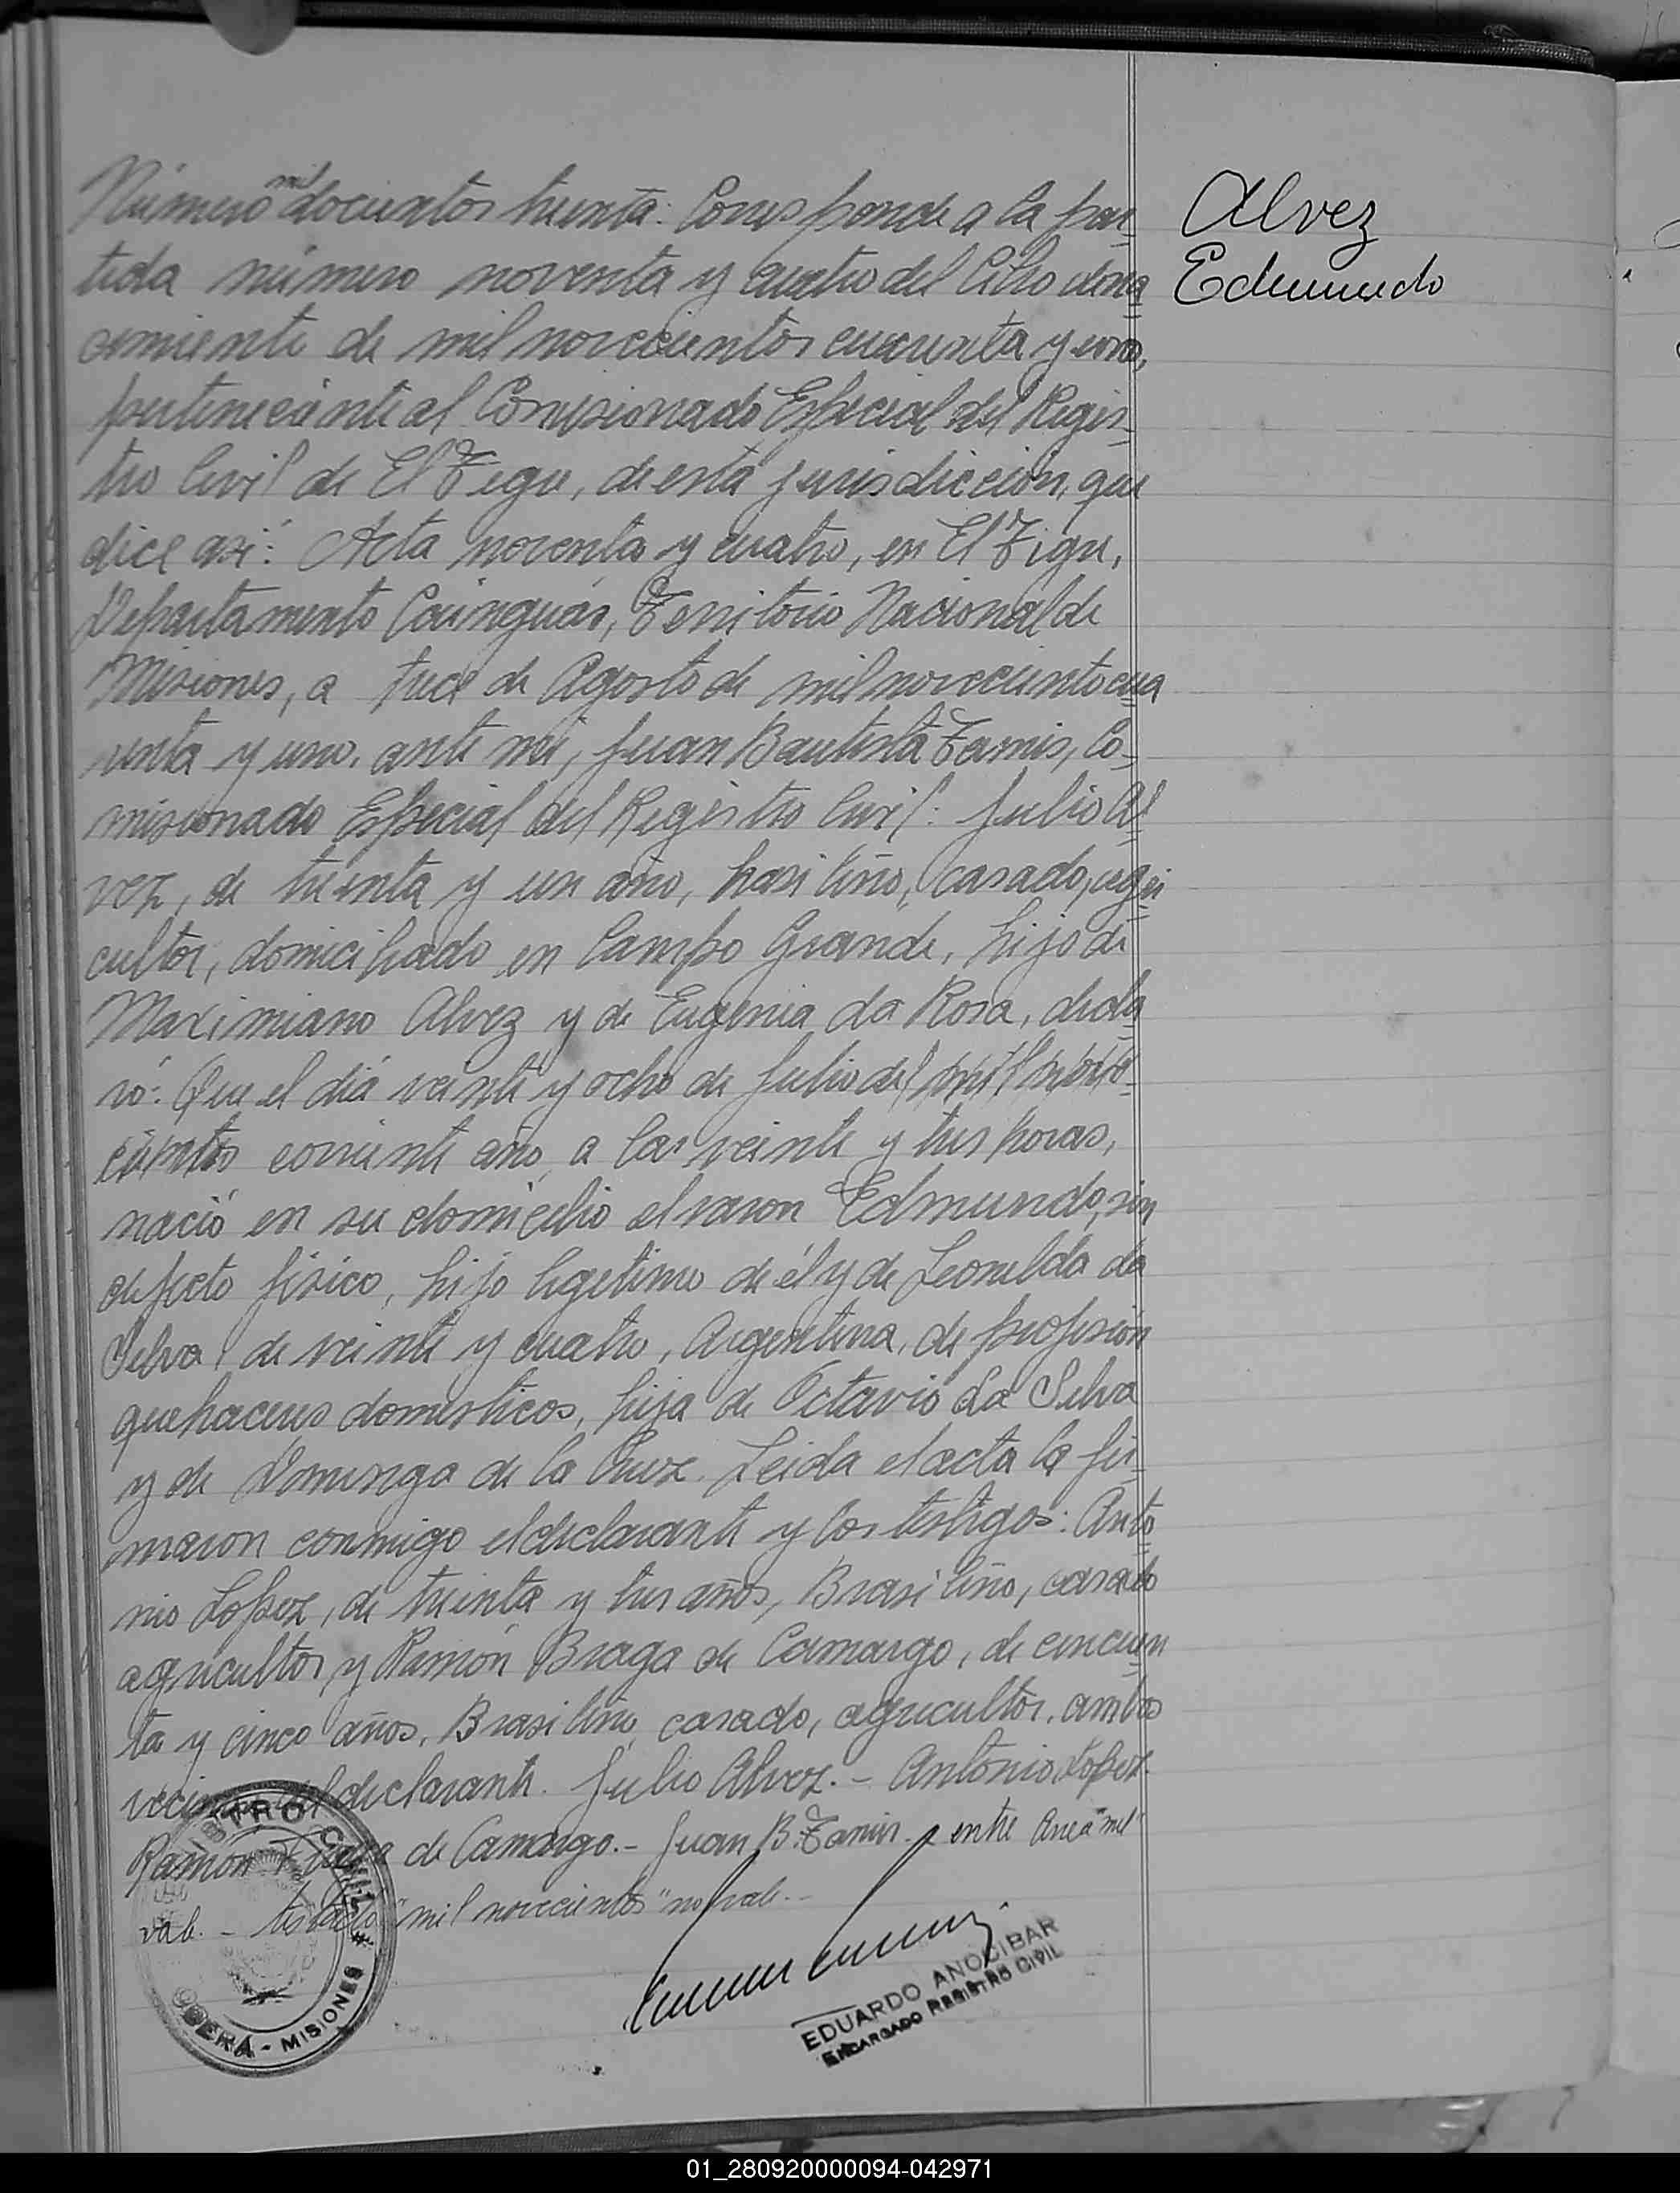 Número mil docientos treinta: Corresponde a la par-
tida número noventa y cuatro del libro de na
cimiento de mil novecientos cuarenta y uno,
perteneciente al Comisionado Especial del Regis-
tro Civil de El Tigre, de esta jurisdicción, que
dice así: Acta noventa y cuatro, en El Tigre,
Departamento Cainguás, Territorio Nacional de
Misiones, a trece de Agosto de mil novecientos cua
renta y uno. ante mi, Juan Bautista, Co-
misionado Especial del Registro Civil: Julio Al
vez, de treinta y un año, brasileño, casado, agri
cultor, domiciliado en Campo Grande, hijo de
Maximiano Alvez y de Eugenia da Rosa, decla
ró: Que el diá veinte y ocho de Julio del mil nove-
cientos corriente año, a las veinte y tres horas,
nació en su domicilio el varon Edmundo, sin
defecto físico, hijo legitimo de él y de Leonilda da
Silva, de veinte y cuatro, Argentina, de profesión
quehaceres domesticos, hija de Octavio da Silva
y de Dominga de la Cruz. Leida el acta la fir-
maron conmigo el declarante y los testigos: Anto
nio Lopez, de treinta y tres años, Brasileño, casado
agricultor, y Ramón Braga de Camargo, de cincuen
ta y cinco años, Brasileño, casado, agricultor, ambos
vecinos del declarante. Julio Alvez.- Antonio Lopez.
Ramón Braga de Camargo.- Juan B. entre linea "mil"
vale. - testado "mil novecientos" no vale.-
Alvez
Edmundo
REGISTRO CIVIL
OBERÁ - MISIONES
EDUARDO ANOCIBAR
ENCARGADO REGISTRO CIVIL
01_280920000094-042971